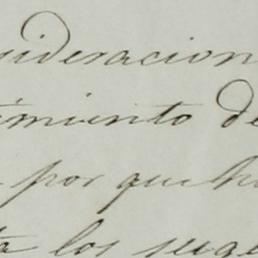 sideracion
imiento de
por que h
los suge